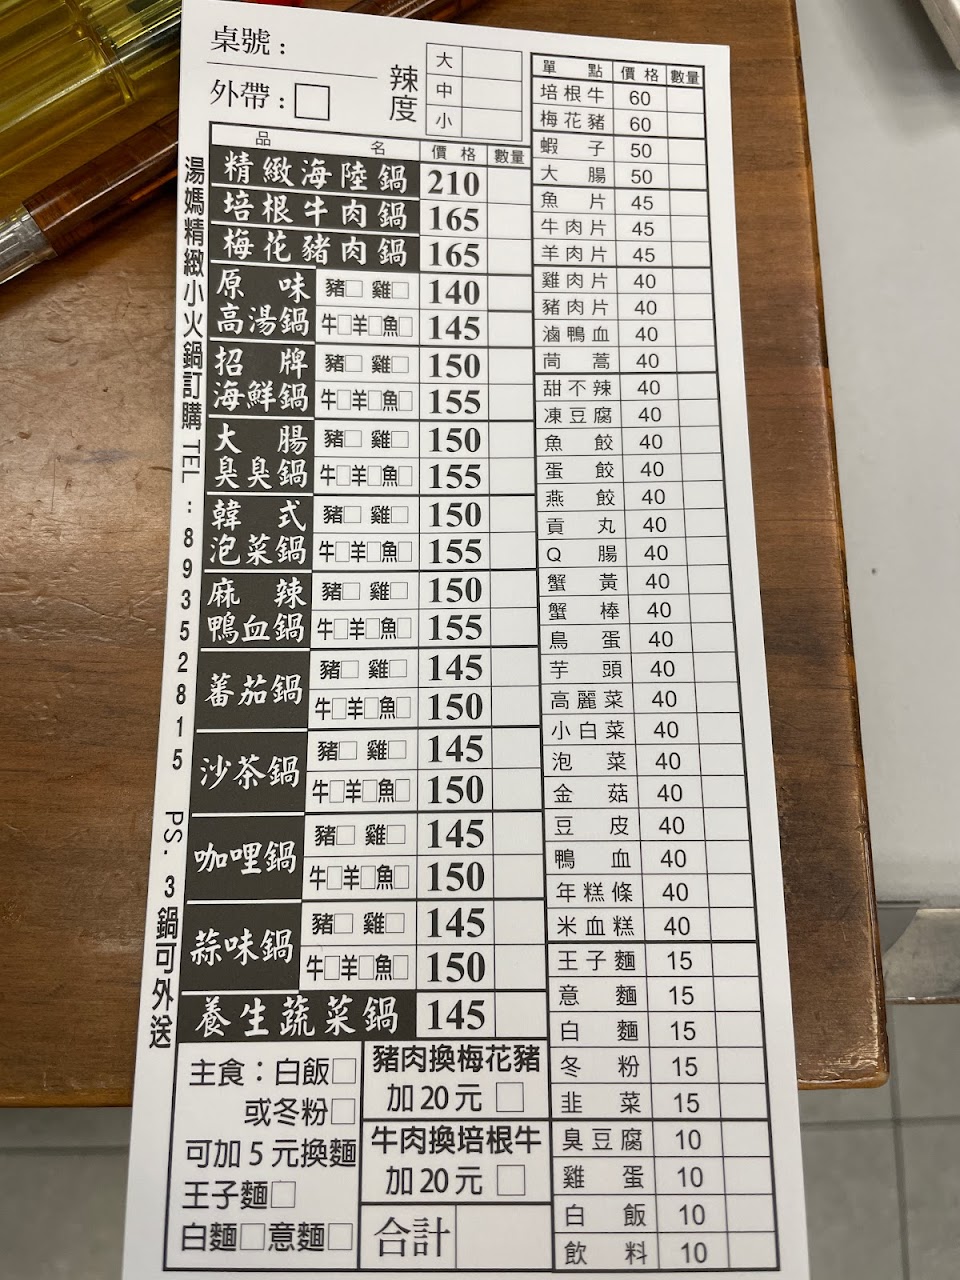 桌號：
外帶：□
辣度
大
中
小
品名 價格 數量
精緻海陸鍋 210
培根牛肉鍋 165
梅花豬肉鍋 165
原味高湯鍋 豬□ 雞□ 140
牛□羊□魚□ 145
招牌海鮮鍋 豬□ 雞□ 150
牛□羊□魚□ 155
大腸臭臭鍋 豬□ 雞□ 150
牛□羊□魚□ 155
韓式泡菜鍋 豬□ 雞□ 150
牛□羊□魚□ 155
麻辣鴨血鍋 豬□ 雞□ 150
牛□羊□魚□ 155
蕃茄鍋 豬□ 雞□ 145
牛□羊□魚□ 150
沙茶鍋 豬□ 雞□ 145
牛□羊□魚□ 150
咖哩鍋 豬□ 雞□ 145
牛□羊□魚□ 150
蒜味鍋 豬□ 雞□ 145
牛□羊□魚□ 150
養生蔬菜鍋 145
主食：白飯□
或冬粉□
可加5元換麵
王子麵□
白麵□意麵□
豬肉換梅花豬
加20元 □
牛肉換培根牛
加20元 □
合計
單點 價格 數量
培根牛 60
梅花豬 60
蝦子 50
大腸 50
魚片 45
牛肉片 45
羊肉片 45
雞肉片 40
豬肉片 40
滷鴨血 40
茼蒿 40
甜不辣 40
凍豆腐 40
魚餃 40
蛋餃 40
燕餃 40
貢丸 40
Q腸 40
蟹黃 40
蟹棒 40
鳥蛋 40
芋頭 40
高麗菜 40
小白菜 40
泡菜 40
金菇 40
豆皮 40
鴨血 40
年糕條 40
米血糕 40
王子麵 15
意麵 15
白麵 15
冬粉 15
韭菜 15
臭豆腐 10
雞蛋 10
白飯 10
飲料 10
湯媽精緻小火鍋訂購 TEL：89352815 PS. 3鍋可外送